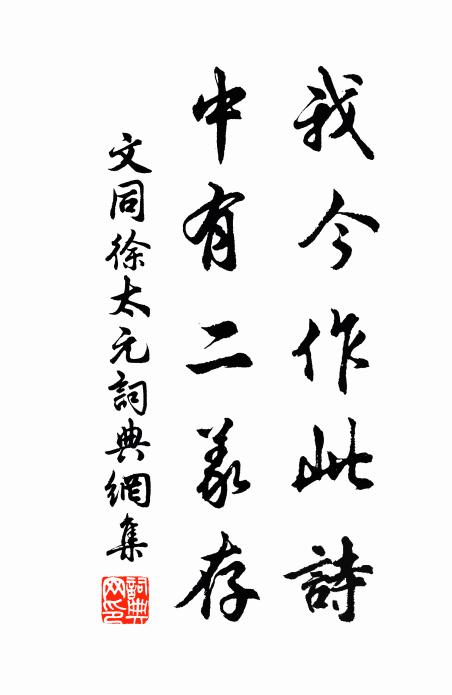 我今作此詩
中有二義存
文同徐太元詞典網集
詞典网印